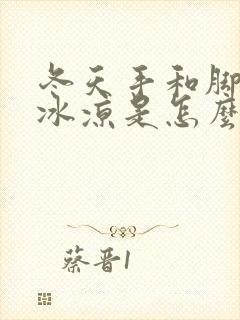 冬天手和脚
冰凉是怎麼
蔡晋1